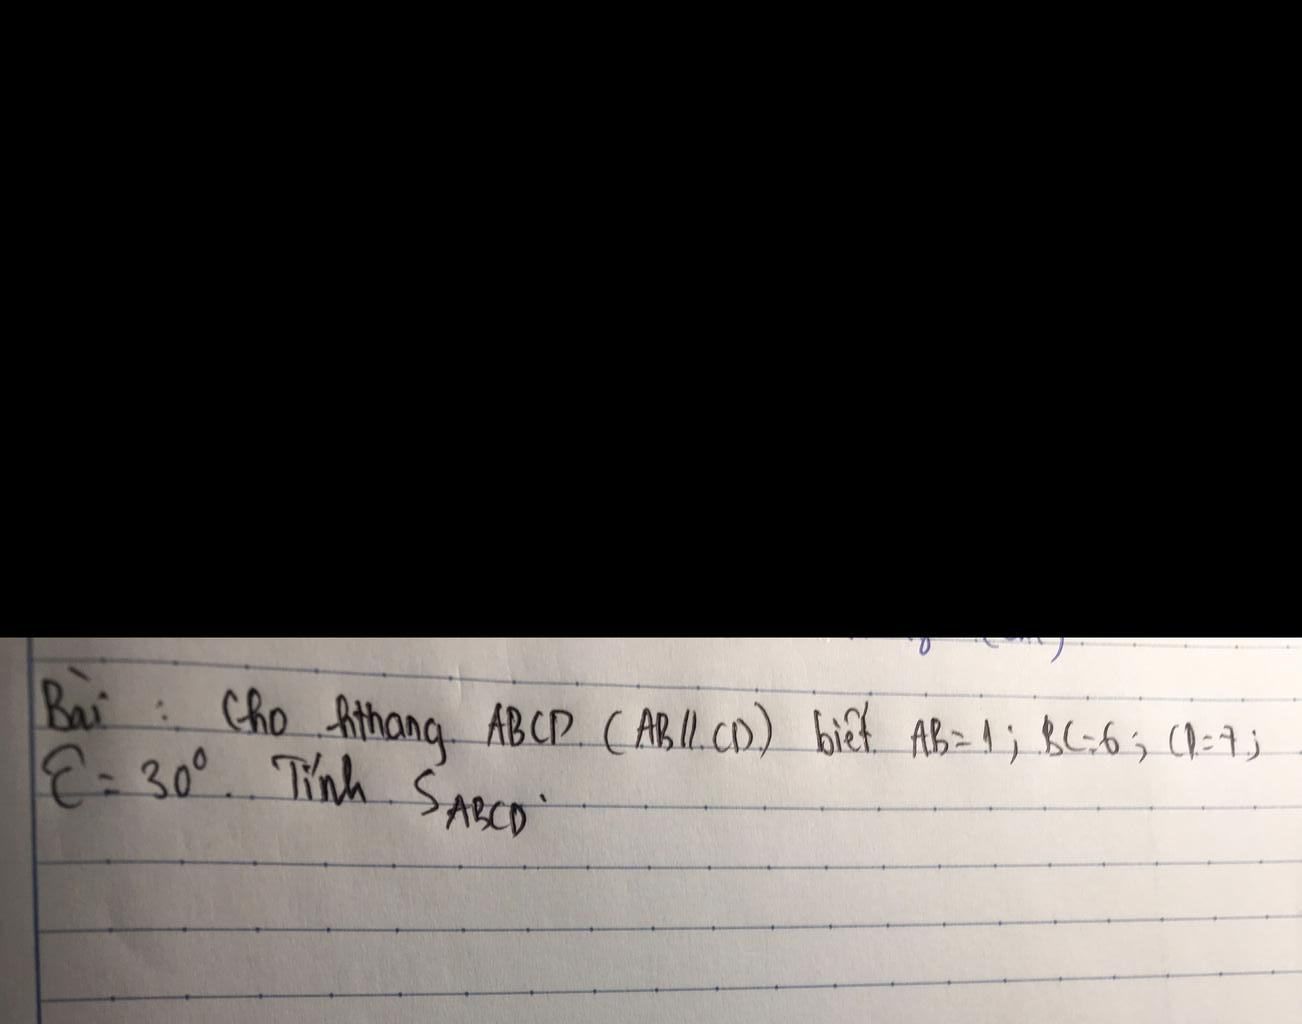 Bài : Cho hthang ABCD (AB // CD) biết AB = 1 ; BC = 6 ; CD = 7 ;
Ĉ = 30°. Tính S_ABCD.